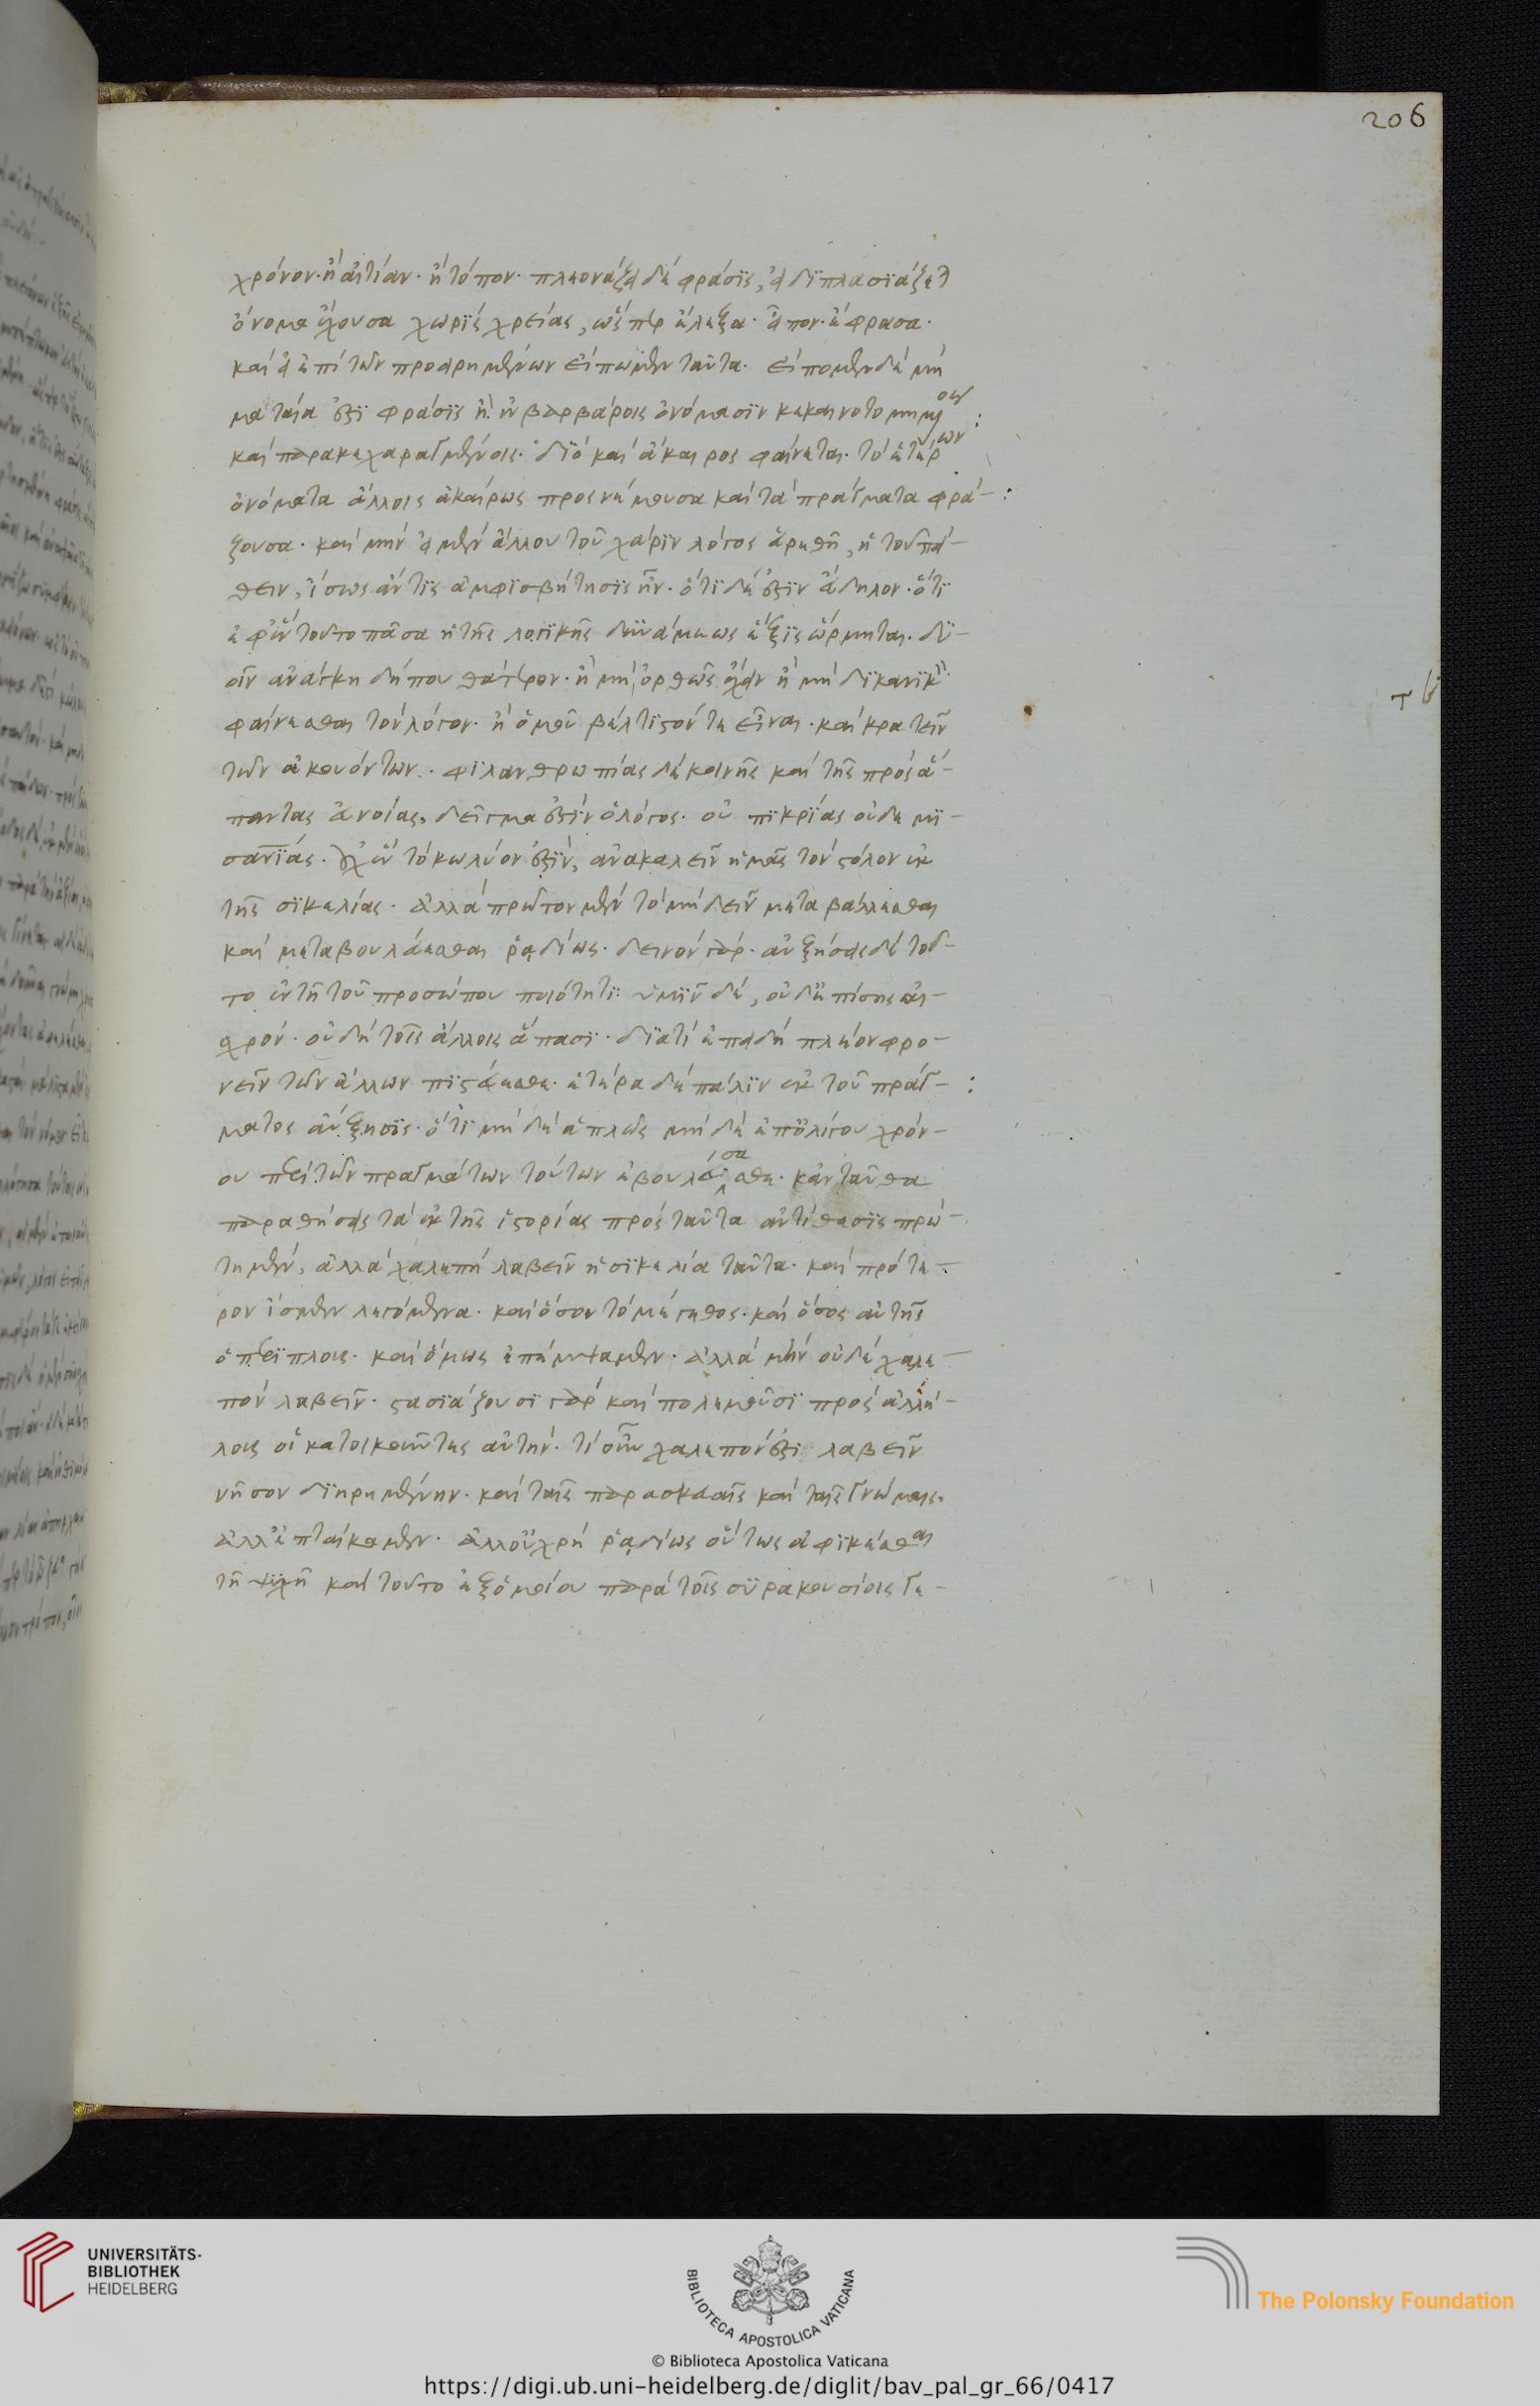 206
χρόνον· ἢ αἰτίαν· ἢ τόπον· πλεονάζει δὲ φράσϊς, εἰ δϊπλασϊάζει τ
ὄνομα ἔχουσα χωρϊς χρείας, ὥσπερ ἔλεξα· εἶπον· ἔφρασα·
καὶ εἰ ἐπὶ τῶν προειρημένων εἴπωμεν ταῦτα· εἴπομεν δὲ μὴ
ματαία ἐστὶ φράσϊς ἢ ἐν βαρβάροις ὀνόμασϊν κεκαινοτομημένοις
καὶ παρακεχαραγμένοις· δϊὸ καὶ ἄκαιρος φαίνεται· τὸ ἑτέρων
ὀνόματα ἄλλοις ἀκαίρως προσνέμουσα καὶ τὰ πράγματα φρά-
ζουσα· καὶ μὴν εἰ μὲν ἄλλου τοῦ χάρϊν λόγος εὑρέθη, ἢ τοῦ πεί-
θειν, ἴσως ἄν τϊς ἀμφϊσβήτησϊς ἦν· ὅτϊ δέ ἐστϊν ἄδηλον· ὅτϊ
ἐφ' ὃν τοῦτο πᾶσα ἡ τῆς λογϊκῆς δϋνάμεως ἕξϊς ὥρμηται· δϋ-
οῖν ἀνάγκη δήπου θάτερον· ἢ μὴ ὀρθῶς ἔχειν ἢ μὴ δϊκανϊκὸν
φαίνεσθαι τὸν λόγον· ἢ ὁμοῦ βέλτϊστόν τε εἶναι· καὶ κρατεῖν
τῶν ἀκουόντων· φϊλανθρωπίας δὲ κοινῆς καὶ τῆς πρὸς ἅ-
παντας εὐνοίας, δεῖγμα ἐστὶν ὁ λόγος· οὐ πϊκρίας οὐδὲ μϊ-
σανίας· ἓν τὸ κωλύον ἐστϊν, ἀνακαλεῖν ἡμᾶς τὸν στόλον ἐκ
τῆς σϊκελίας· ἀλλὰ πρῶτον μὲν τὸ μὴ δεῖν μεταβάλλεσθαι
καὶ μεταβουλεύεσθαι ῥᾳδίως· δεινὸν γὰρ· αὐξήσεις δὲ τοῦ-
το ἐν τῇ τοῦ προσώπου ποιότητϊ· ὑμῖν δὲ, οὐδ' ἐπίσης αἰσ-
χρόν· οὐ δὴ τοῖς ἄλλοις ἅπασϊ· δϊατί ἐπειδὴ πλέον φρο-
νεῖν τῶν ἄλλων πϊστεύεσθε· ἑτέρα δὲ πάλϊν ἐκ τοῦ πράγ-
ματος αὔξησϊς· ὅτϊ μὴ δὲ ἁπλῶς μὴ δὲ ἐπ' ὀλίγου χρόν-
ου περὶ τῶν πραγμάτων τούτων ἐβουλεύσασθε· κἀνταῦθα
παραθήσεις τὰ ἐκ τῆς ἱστορίας πρὸς ταῦτα ἀντίθεσϊς πρώ-
τη μὲν, ἀλλὰ χαλεπὴ λαβεῖν ἡ σϊκελία ταῦτα· καὶ πρότε-
ρον ἴσμεν λεγόμενα· καὶ ὅσον τὸ μέγεθος· καὶ ὅσος αὐτῆς
ὁ περίπλους· καὶ ὅμως ἐπέμψαμεν· ἀλλὰ μὴν οὐδὲ χαλε-
πὸν λαβεῖν· στασϊάζουσϊ γὰρ καὶ πολεμοῦσϊ πρὸς ἀλλή-
λους οἱ κατοικοῦντες αὐτήν· τί οὖν χαλεπὸν ἐστϊ λαβεῖν
νῆσον δϊηρημένην· καὶ ταῖς παρασκευαῖς καὶ ταῖς γνώμαις·
ἀλλ' ἐπταίκαμεν· ἀλλ' οὐ χρὴ ῥᾳδίως οὕτως ἀφϊκέσθαι
τῇ τύχῃ καὶ τοῦτο ἐξ ὁμοίου παρὰ τοῖς σϋρακουσίοις γε-
UNIVERSITÄTS-
BIBLIOTHEK
HEIDELBERG
BIBLIOTECA APOSTOLICA VATICANA
The Polonsky Foundation
© Biblioteca Apostolica Vaticana
https://digi.ub.uni-heidelberg.de/diglit/bav_pal_gr_66/0417